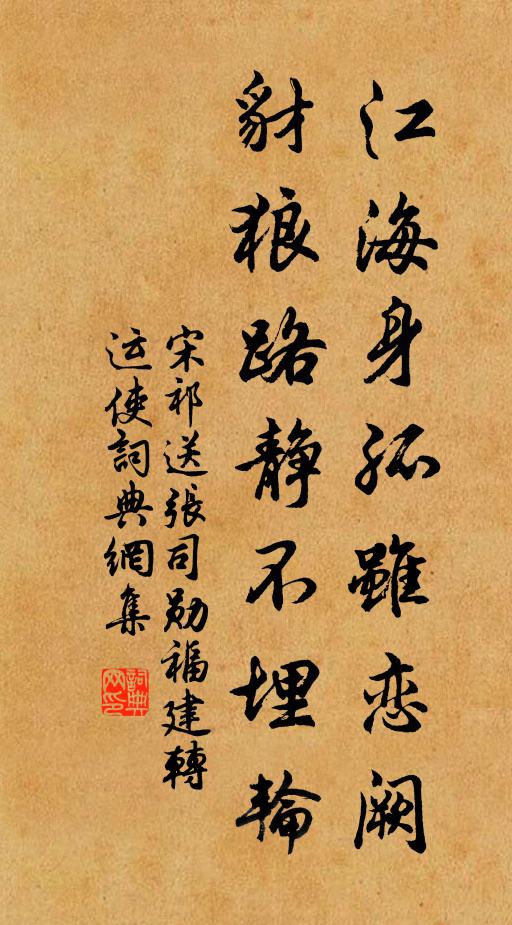 江海身孤雖恋阙
豺狼路静不埋輪
宋祁送張司勛福建轉
运使詞典網集
詞典网印